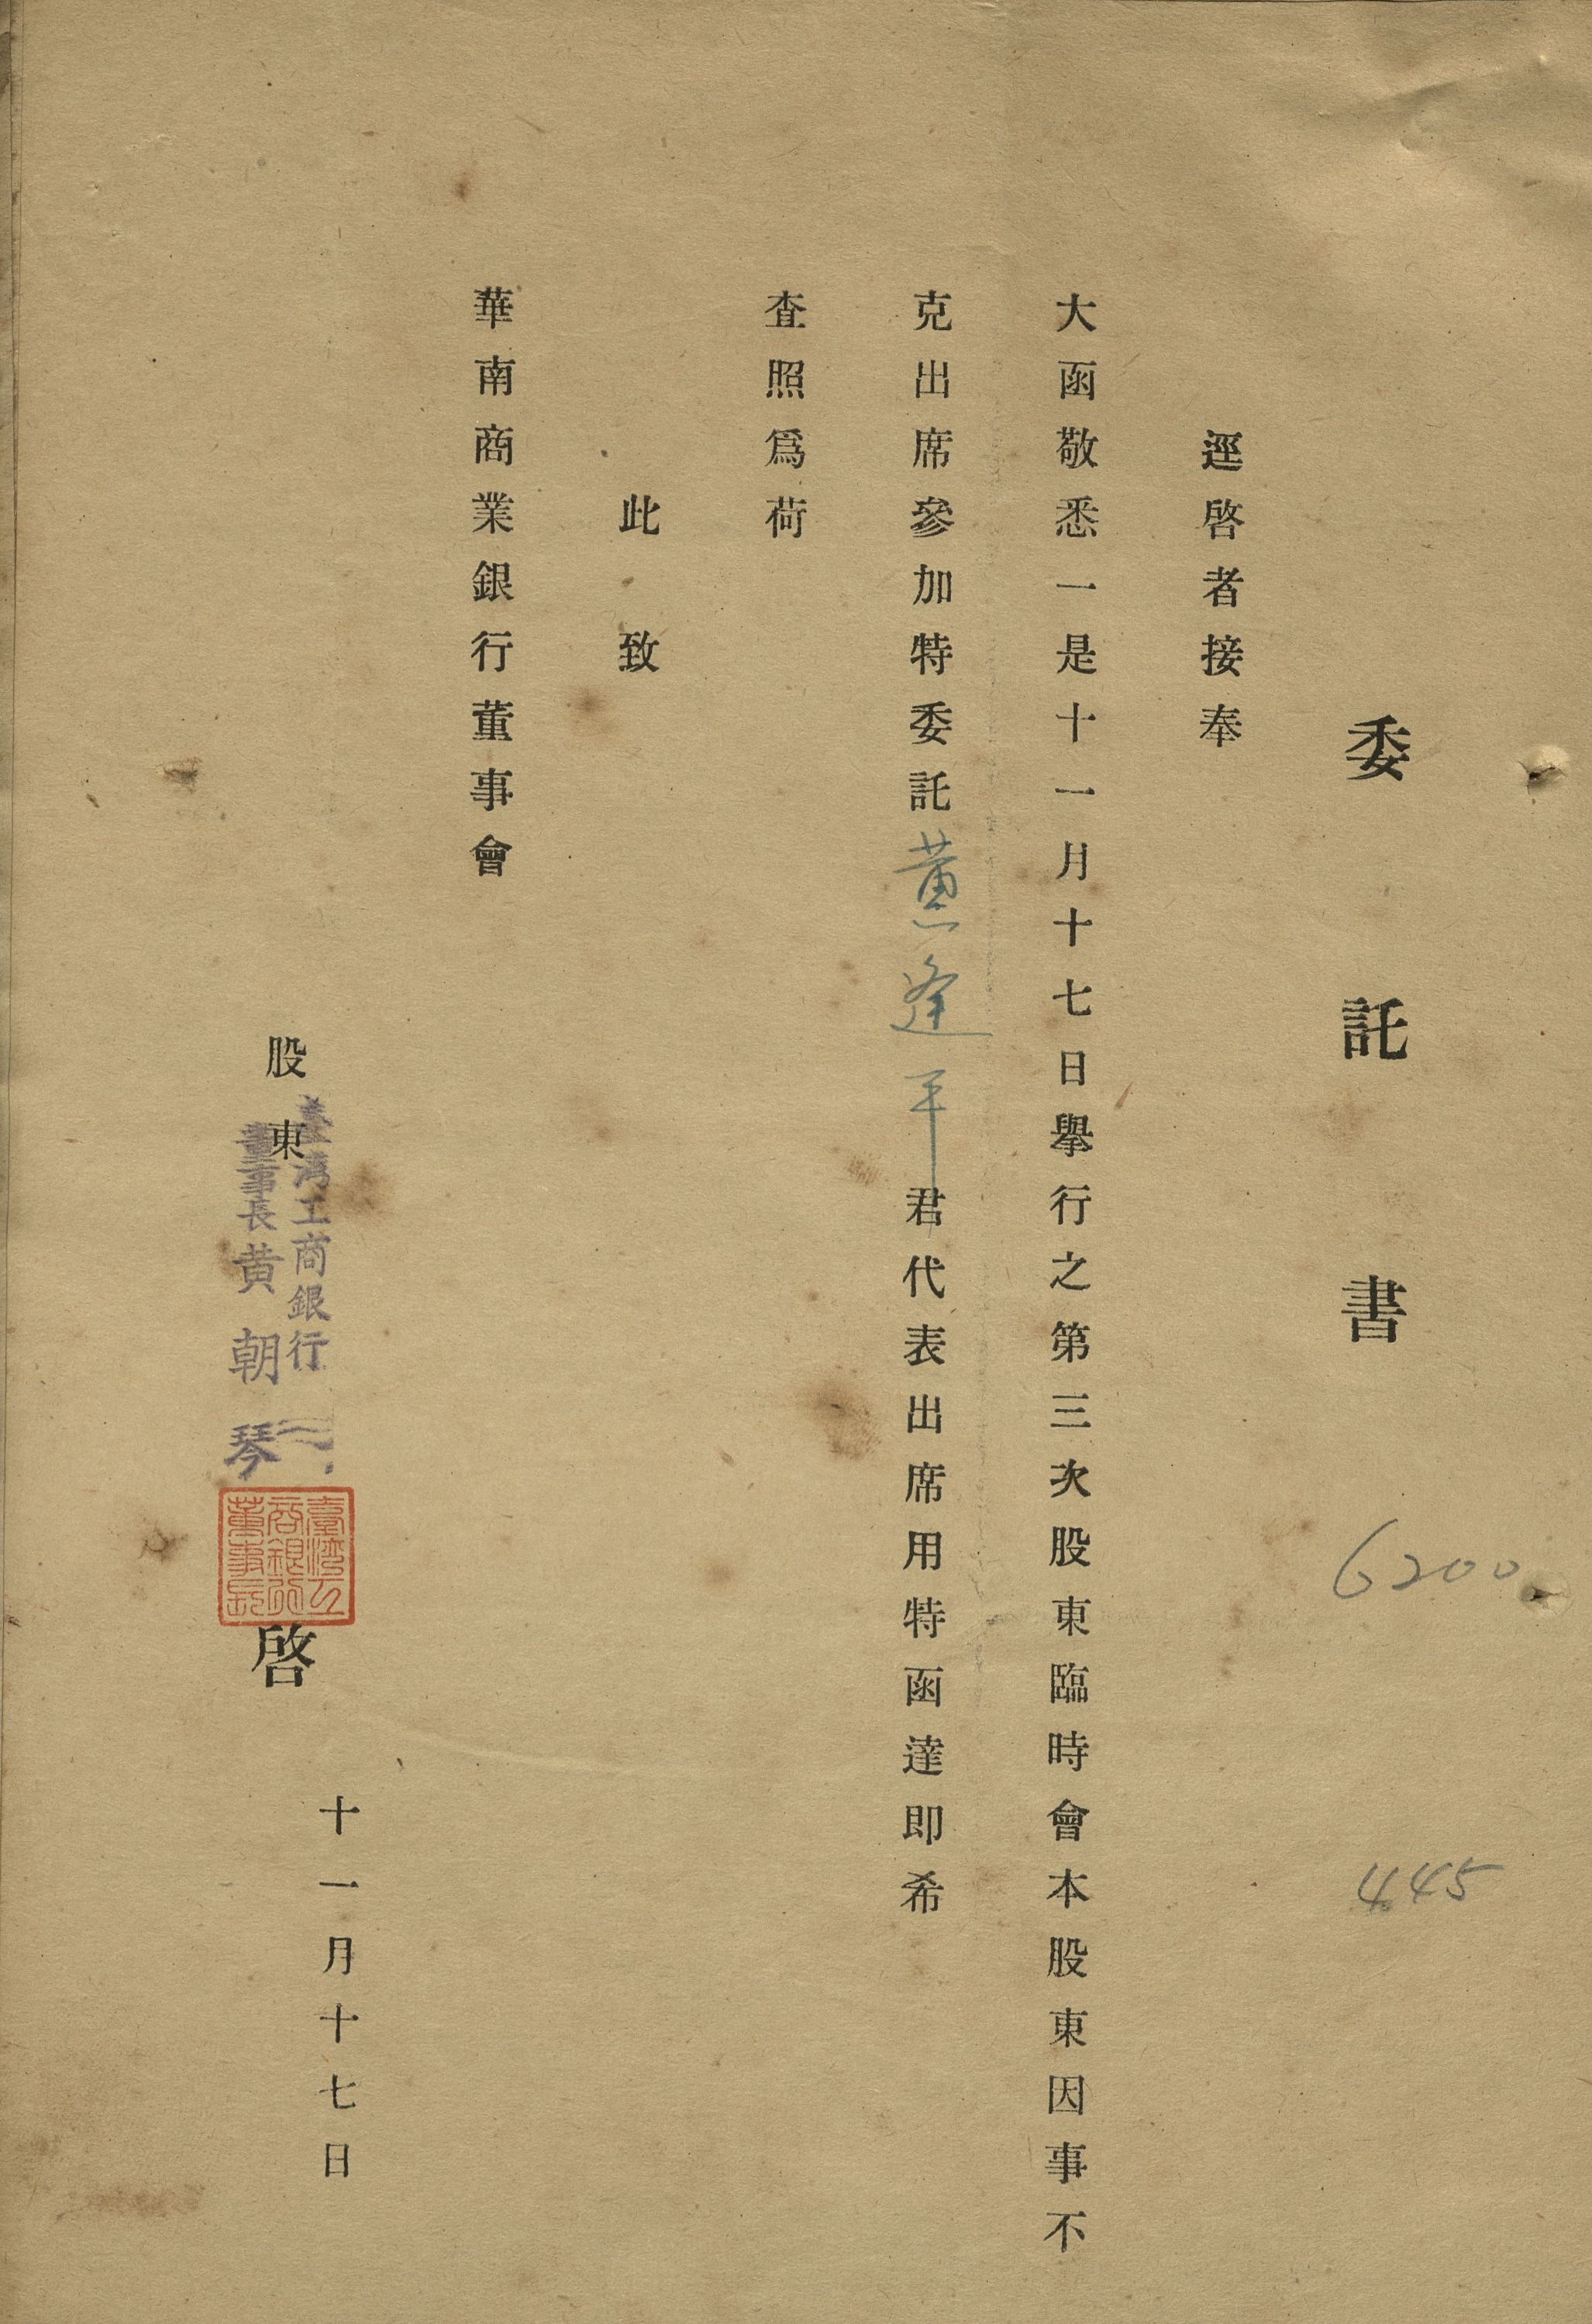 委託書
6200
445
逕啓者接奉
大函敬悉一是十一月十七日舉行之第三次股東臨時會本股東因事不
克出席參加特委託黃逢平君代表出席用特函達即希
査照爲荷
此致
華南商業銀行董事會
股東
臺湾工商銀行
董事長黃朝琴
臺灣工
商銀行
董事長
啓
十一月十七日